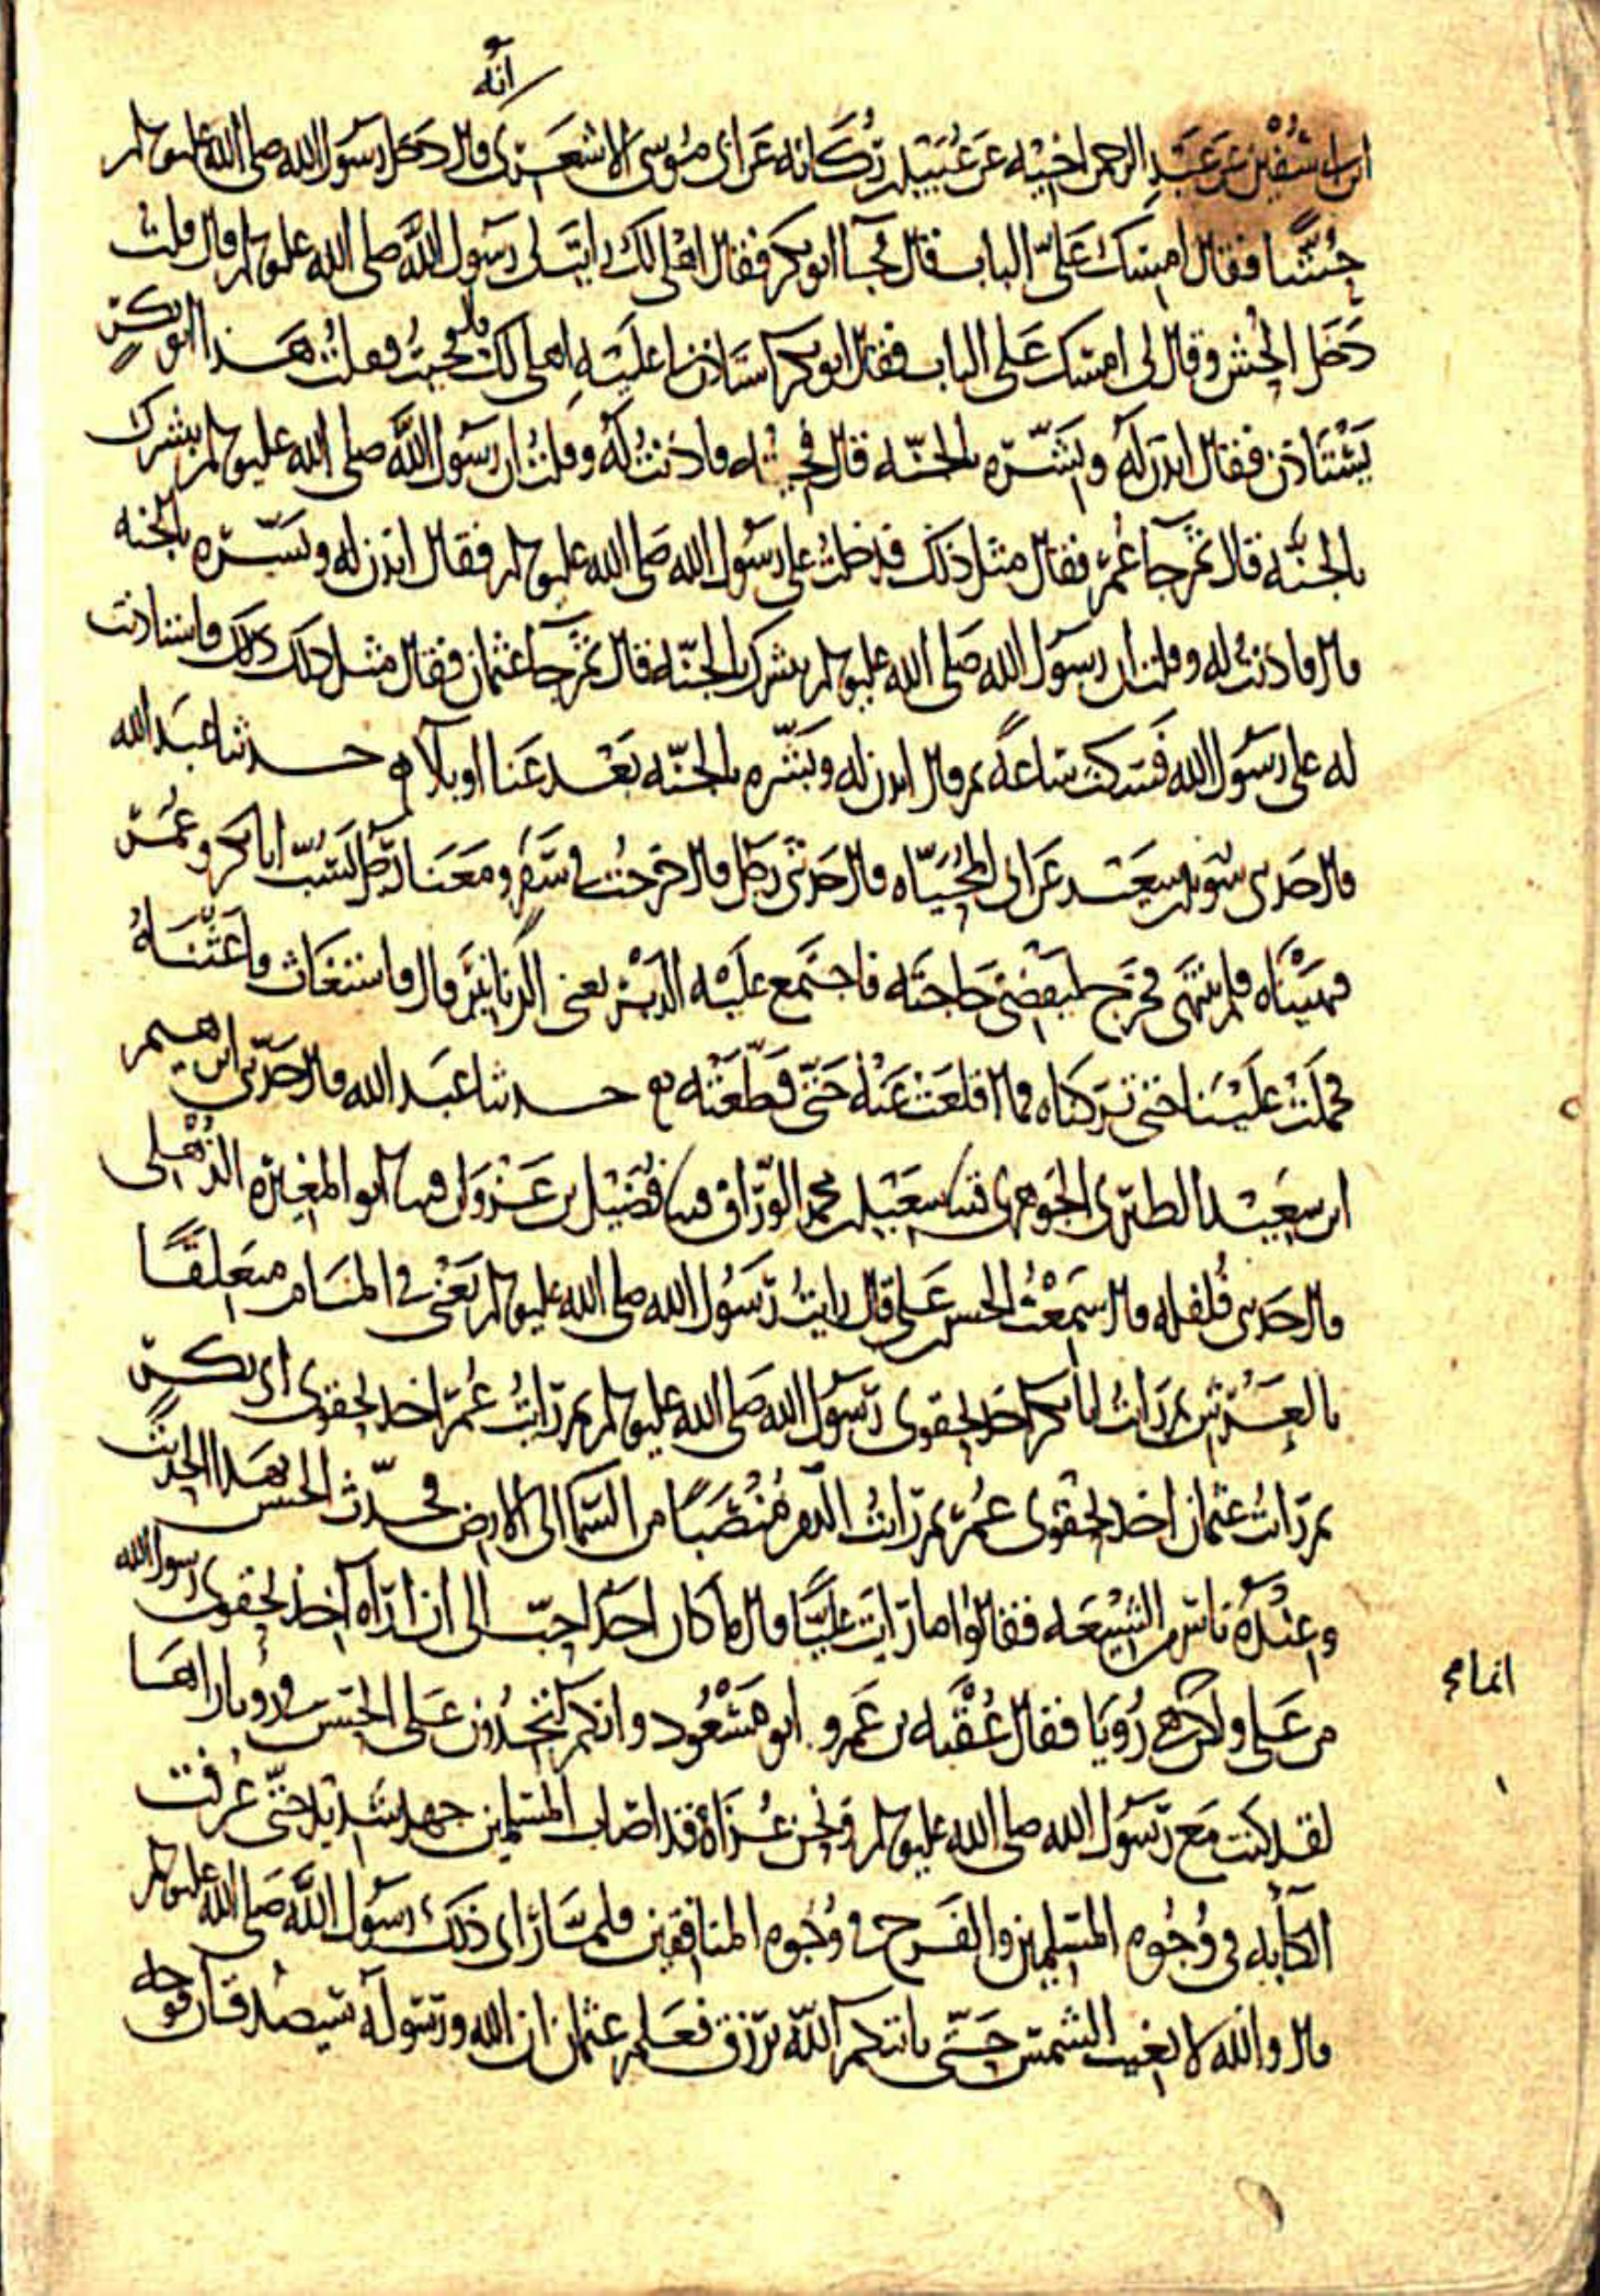 انه
ابن سفين عن عبد الرحمن اخيه عن عبيد بن ركانه عن ابي موسى الاشعري قال دخل رسول الله صلى الله عليه وسلم
حشا فقال امسك علي الباب قال فجآ ابو بكر فقال رسول الله صلى الله عليه وسلم قال قلت
دخل الحش وقال لي امسك على الباب فقال ابو بكر استاذن لنا عليه فجيت فقلت هذا ابو بكر
يستاذن فقال ايذن له وبشره بالجنه قال فجيته فاذنت له وقلت ان رسول الله صلى الله عليه وسلم يبشرك
بالجنه قال ثم جا عمر فقال مثل ذلك فدخلت على رسول الله صلى الله عليه وسلم فقال ايذن له وبشره بالجنه
قال فاذنت له وقلت ان رسول الله صلى الله عليه وسلم يبشرك بالجنه قال ثم جا عثمان فقال مثل ذلك فاستاذنت
له على رسول الله فسكت ساعة ثم قال ايذن له وبشره بالجنه بعد عنا او بلآ حدثنا عبد الله
قال حدثني سويد بن سعيد عن ابي المحياه قال حدثني رجل قال خرجت في سفر ومعنا رجل يسب ابا بكر وعمر
فنهيناه فلم ينتهي فخرج ليقضي حاجته فاجتمع عليه الدبر يعني الزنانير قال فاستغاث فاغثناه
فحملت علينا حتى تركناه فما اقلعت عنه حتى قطعته حدثنا عبد الله قال حدثني ابرهيم
ابن سعيد الطبري الجوهري ثنا سعيد بن محمد الوراق ثنا فضيل بن غزوان ثنا ابو المغيره الذهلي
قال حدثني فلفله قال سمعت الحسن بن علي قال رايت رسول الله صلى الله عليه وسلم يعني في المنام متعلقا
بالعرش ثم رايت ابا بكر اخذ بحقوي رسول الله صلى الله عليه وسلم ثم رايت عمر اخذ بحقوي ابي بكر
ثم رايت عثمان اخذ بحقوي عمر ثم رايت الدم منصبا من السما الى الارض فحدث الحسن بهذا الحديث
وعنده ناس من الشيعه فقالوا ما رايت عليا قال ما كان احد احب الي ان اراه اخذ بحقوي رسول الله
من علي ولكن هي رويا فقال عقبه بن عمرو ابو مسعود وانكم لتجدون على الحسن في رويا راها
انما هي
لقد كنت مع رسول الله صلى الله عليه وسلم ونحن غزاة قد اصاب المسلمين جهد شديد حتى عرفت
الكآبه في وجوه المسلمين والفرح في وجوه المنافقين فلما راى ذلك رسول الله صلى الله عليه وسلم
قال والله لا يغيب الشمس حتى ياتيكم الله برزق فعلم عثمان ان الله ورسوله سيصدقان فوجه